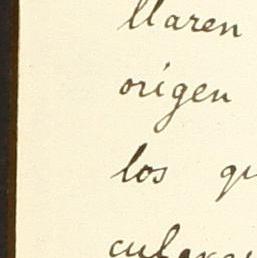 llaren
origen
los qu